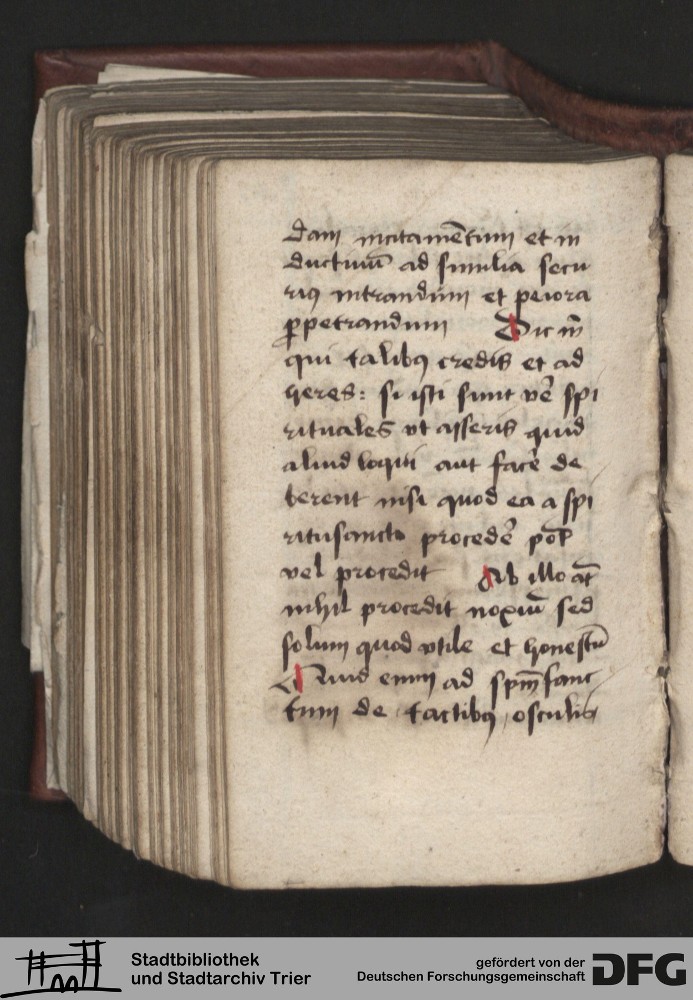 dam incitamētum et in
ductiuū ad similia secu
riꝯ intrandum et peiora
ꝑpetrandum Dic m̄
qui talibꝯ credis et ad
heres: si isti sunt ve᷑ spi
rituales vt asseris quid
aliud loqui aut face᷑ de
berent nisi quod ea a spi
ritusancto procede᷑ pot̄
vel procedit Ab illo at̄
nihil procedit noxiū sed
solum quod vtile et honestū
Quid enim ad spm̄sanc
tum de tactibꝯ osculis
Stadtbibliothek
und Stadtarchiv Trier
gefördert von der
Deutschen Forschungsgemeinschaft
DFG